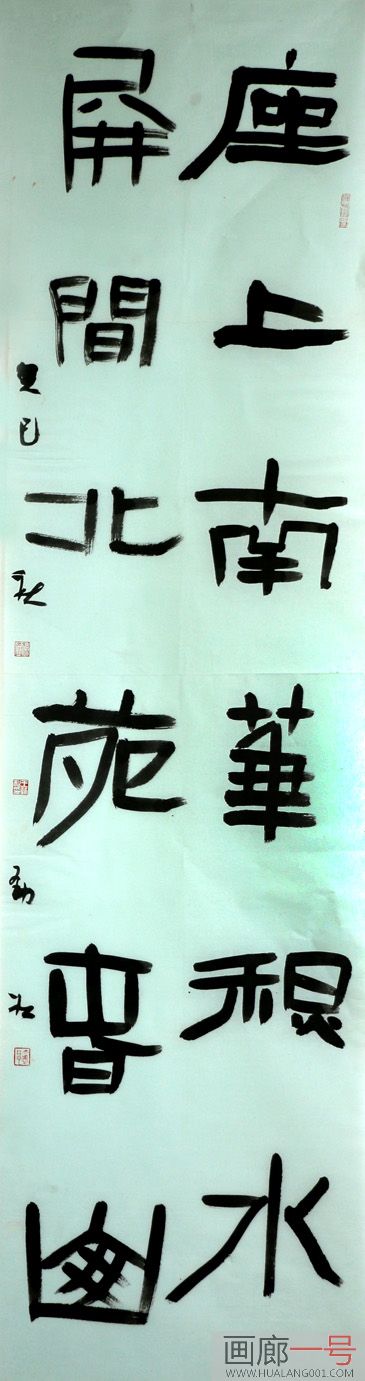 座上南華秋水
屏間北苑春山
癸巳秋勁松
画廊一号
WWW.HUALANG001.COM